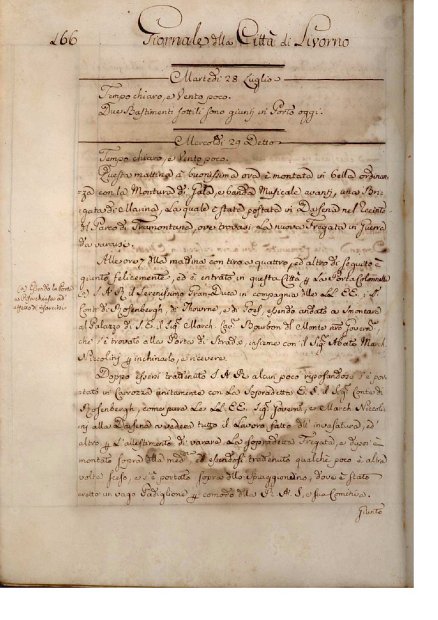 166 Giornale della Città di Livorno
Martedì 28 Luglio
Tempo chiaro, e Vento poco.
Due Bastimenti sottili sono giunti in Porto oggi.
Mercoldì 29 Detto
Tempo chiaro, e Vento poco.
Questa mattina à buonissima ora è montata in bella ordinan-
za con la Montura di Gala, e banda Musicale avanti, una Bri-
gata di Marina, La quale è stata postata in Darsena nel Recinto
del Parco di Tramontana, ove trovasi La nuova Fregata in Guerra
da vararsi.
Alle ore 7 della mattina con tiro a quattro, ed altro di seguito è
giunto felicemente, ed è entrato in questa Città p la Porta Colonnella
S. A. R. il Serenissimo Gran Duca in compagnia delle LL. EE. i S.
Conti di Rosenbergh, di Thourn, e di essendo andato a smontare
al Palazzo di S. E. il Sig. March. Cav. Bourbon del Monte nro Govern.
che s'è trovato alla Porta di Strada, insieme con il Sig. Abate March.
Niccolini p inchinarlo, e ricevere.
Doppo essersi trattenuto S. A. R. alcun poco riposandosi s'è por-
tato in Carrozza unitamente con La Sopradetta E. S. il Sig. Conte di
Rosenbergh, come pure Le LL. EE. Sig. Govern. e March. Niccoli-
ni alla Darsena a vedere tutto il Lavoro fatto dell' invasatura, ed
altro p L'allestimento di varare La sopradetta Fregata, e dipoi è
montato sopra alla med. ed essendosi trattenuto qualche poco è altre
volte sceso, e s'è portato sopra allo Spiaggioncino, dove è stato
eretto un vago Padiglione p comodo della R. A. S. e sua Comitiva.
Giunto